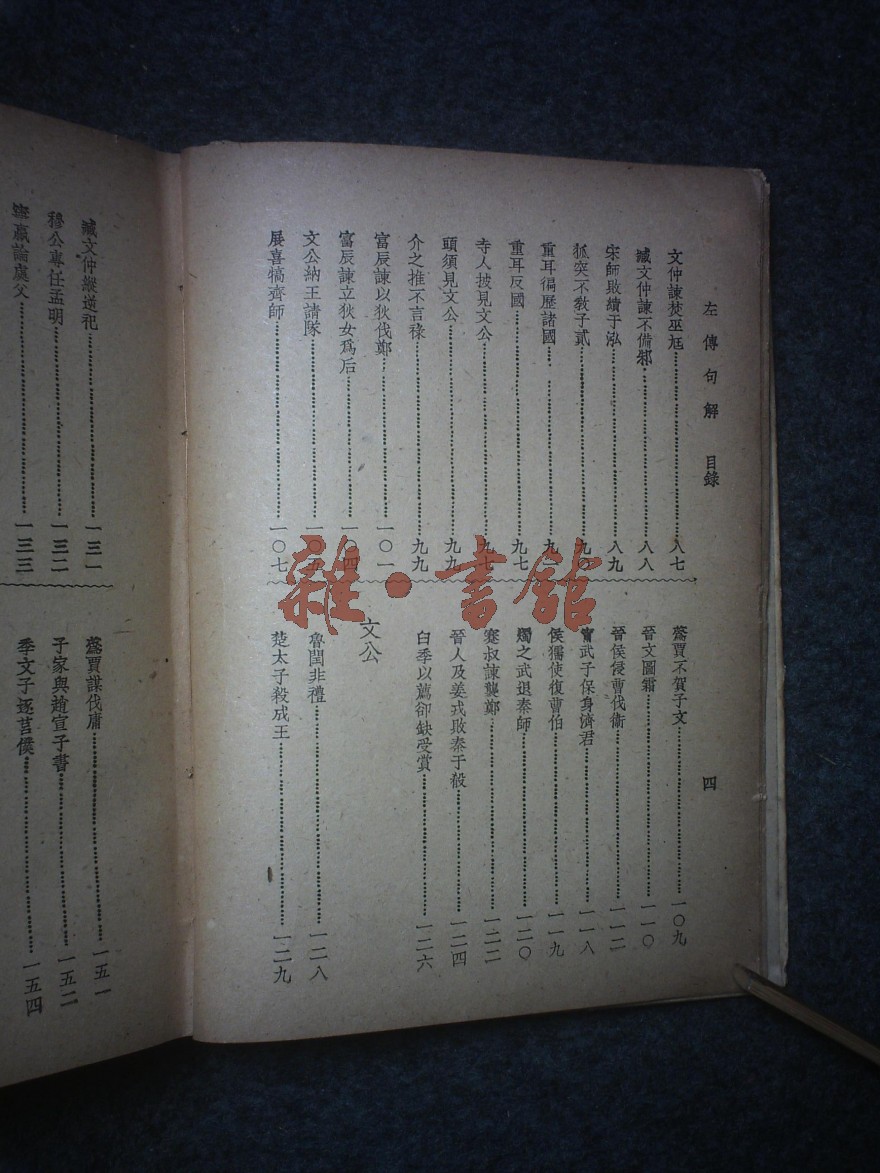 左傳句解 目錄 四
文仲諫焚巫尪 八七
臧文仲諫不備邾 八八
宋師敗績于泓 八九
狐突不教子貳
重耳徧歷諸國
重耳反國 九七
寺人披見文公 九七
頭須見文公 九九
介之推不言祿 九九
富辰諫以狄伐鄭 一〇一
富辰諫立狄女爲后 一〇四
文公納王請隧 一〇五
展喜犒齊師 一〇七
蔿賈不賀子文 一〇九
晉文圖霸 一一〇
晉侯侵曹伐衛 一一二
甯武子保身濟君 一一八
侯獳使復曹伯 一一九
燭之武退秦師 一二〇
蹇叔諫襲鄭 一二二
晉人及姜戎敗秦于殽 一二四
臼季以薦卻缺受賞 一二六
文公
魯閏非禮 一二八
楚太子殺成王 一二九
臧文仲縱逆祀 一三一
穆公專任孟明 一三二
甯嬴論處父 一三三
蔿賈謀伐庸 一五一
子家與趙宣子書 一五二
季文子逐莒僕 一五四
雜·書館